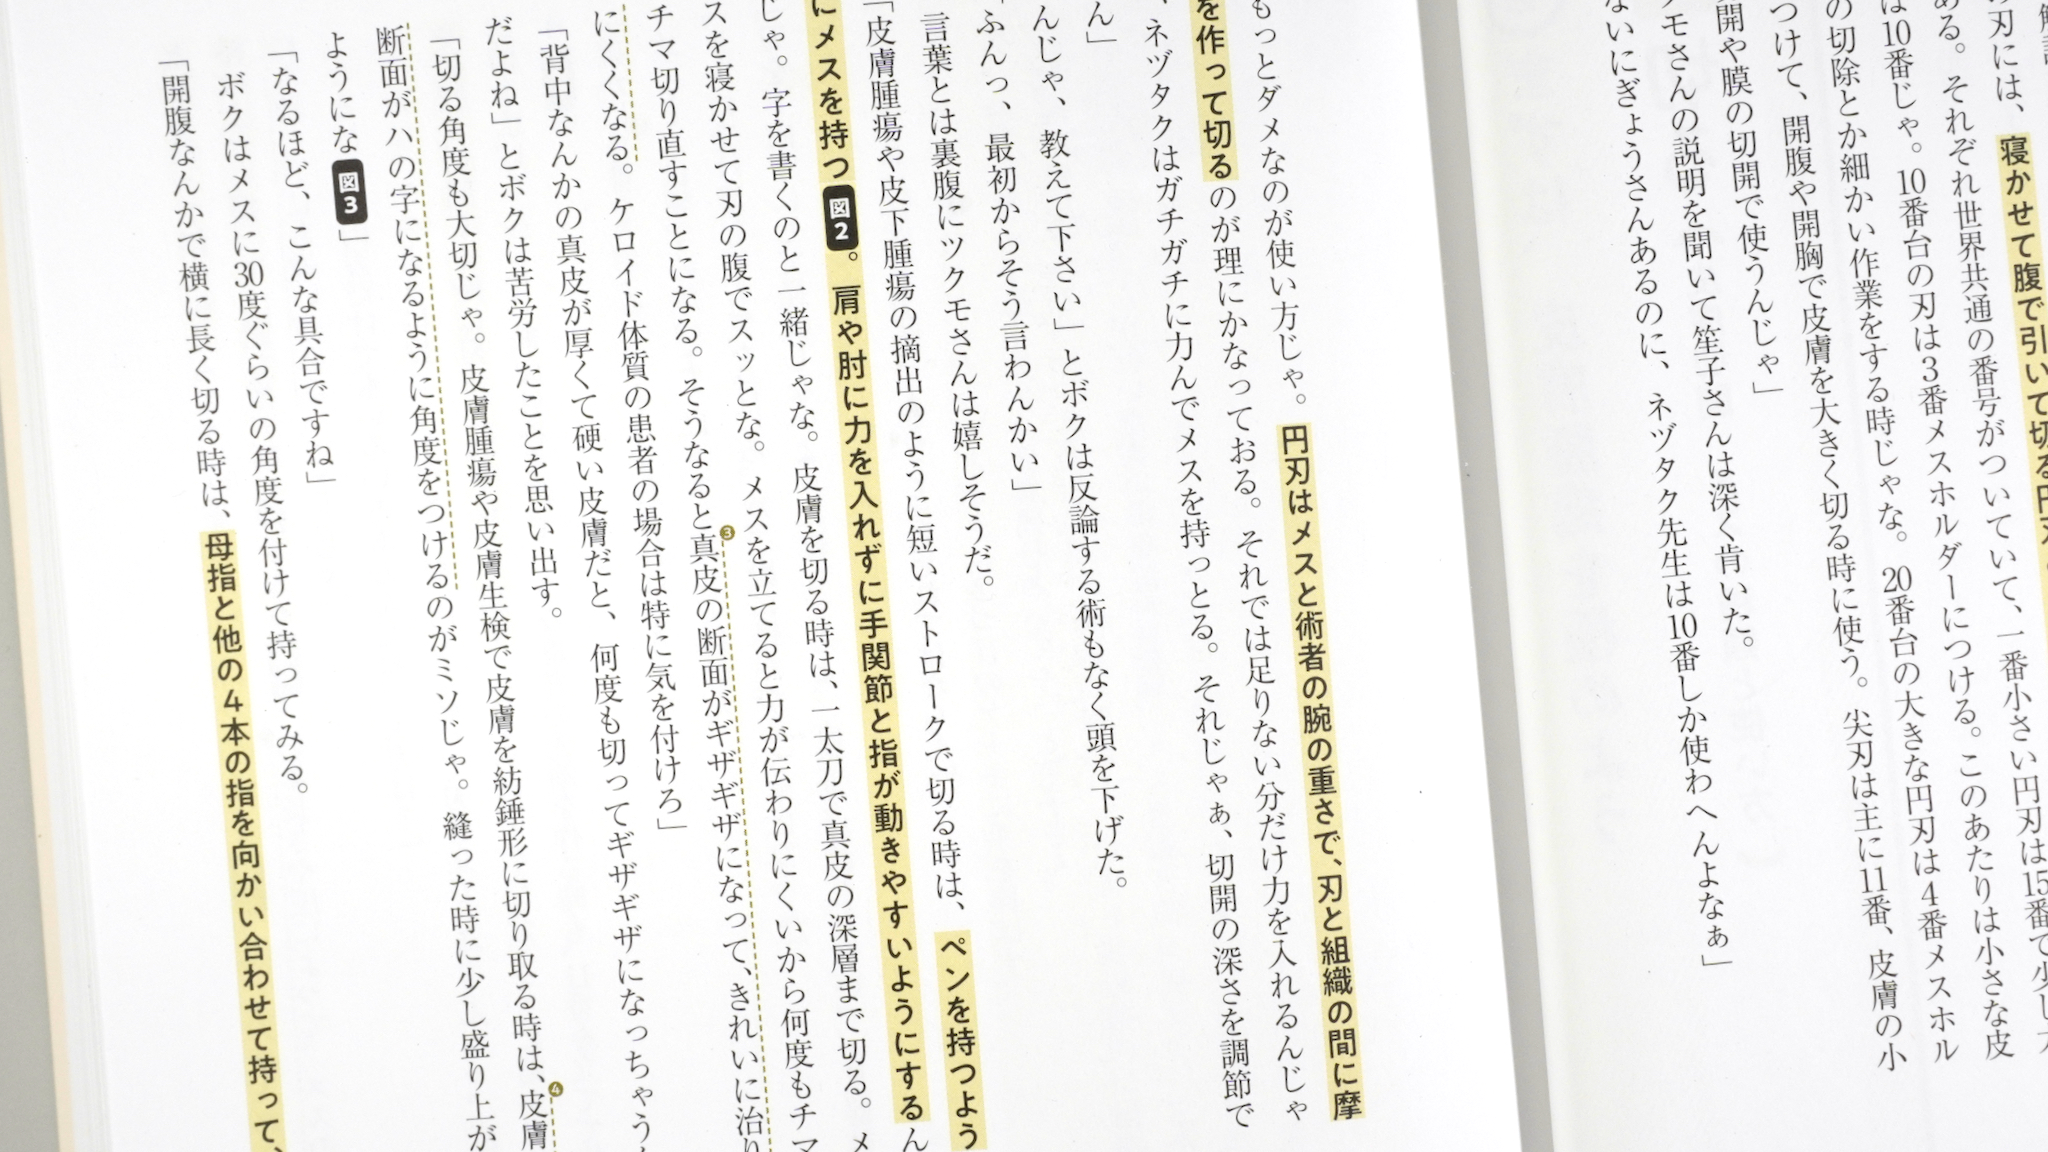 の刃には、寝かせて腹で引いて切る円刃
ある。それぞれ世界共通の番号がついていて、一番小さい円刃は15番で少し
は10番じゃ。10番台の刃は3番メスホルダーにつける。このあたりは小さな皮
の切除とか細かい作業をする時じゃな。20番台の大きな円刃は4番メスホル
つけて、開腹や開胸で皮膚を大きく切る時に使う。尖刃は主に11番、皮膚の小
開や膜の切開で使うんじゃ」
モさんの説明を聞いて笙子さんは深く肯いた。
ないにぎょうさんあるのに、ネヅタク先生は10番しか使わへんよなぁ」
もっとダメなのが使い方じゃ。円刃はメスと術者の腕の重さで、刃と組織の間に摩
を作って切るのが理にかなっておる。それでは足りない分だけ力を入れるんじゃ
ネヅタクはガチガチに力んでメスを持っとる。それじゃぁ、切開の深さを調節で
ん」
んじゃ、教えて下さい」とボクは反論する術もなく頭を下げた。
「ふんっ、最初からそう言わんかい」
言葉とは裏腹にツクモさんは嬉しそうだ。
「皮膚腫瘍や皮下腫瘍の摘出のように短いストロークで切る時は、ペンを持つよう
にメスを持つ図2。肩や肘に力を入れずに手関節と指が動きやすいようにするん
じゃ。字を書くのと一緒じゃな。皮膚を切る時は、一太刀で真皮の深層まで切る。メ
スを寝かせて刃の腹でスッとな。メスを立てると力が伝わりにくいから何度もチマ
チマ切り直すことになる。そうなると❸真皮の断面がギザギザになって、きれいに治り
にくくなる。ケロイド体質の患者の場合は特に気を付けろ」
「背中なんかの真皮が厚くて硬い皮膚だと、何度も切ってギザギザになっちゃう
だよね」とボクは苦労したことを思い出す。
「切る角度も大切じゃ。皮膚腫瘍や皮膚生検で皮膚を紡錘形に切り取る時は、❹皮膚
断面がハの字になるように角度をつけるのがミソじゃ。縫った時に少し盛り上が
ようにな図3」
「なるほど、こんな具合ですね」
ボクはメスに30度ぐらいの角度を付けて持ってみる。
「開腹なんかで横に長く切る時は、母指と他の4本の指を向かい合わせて持って、